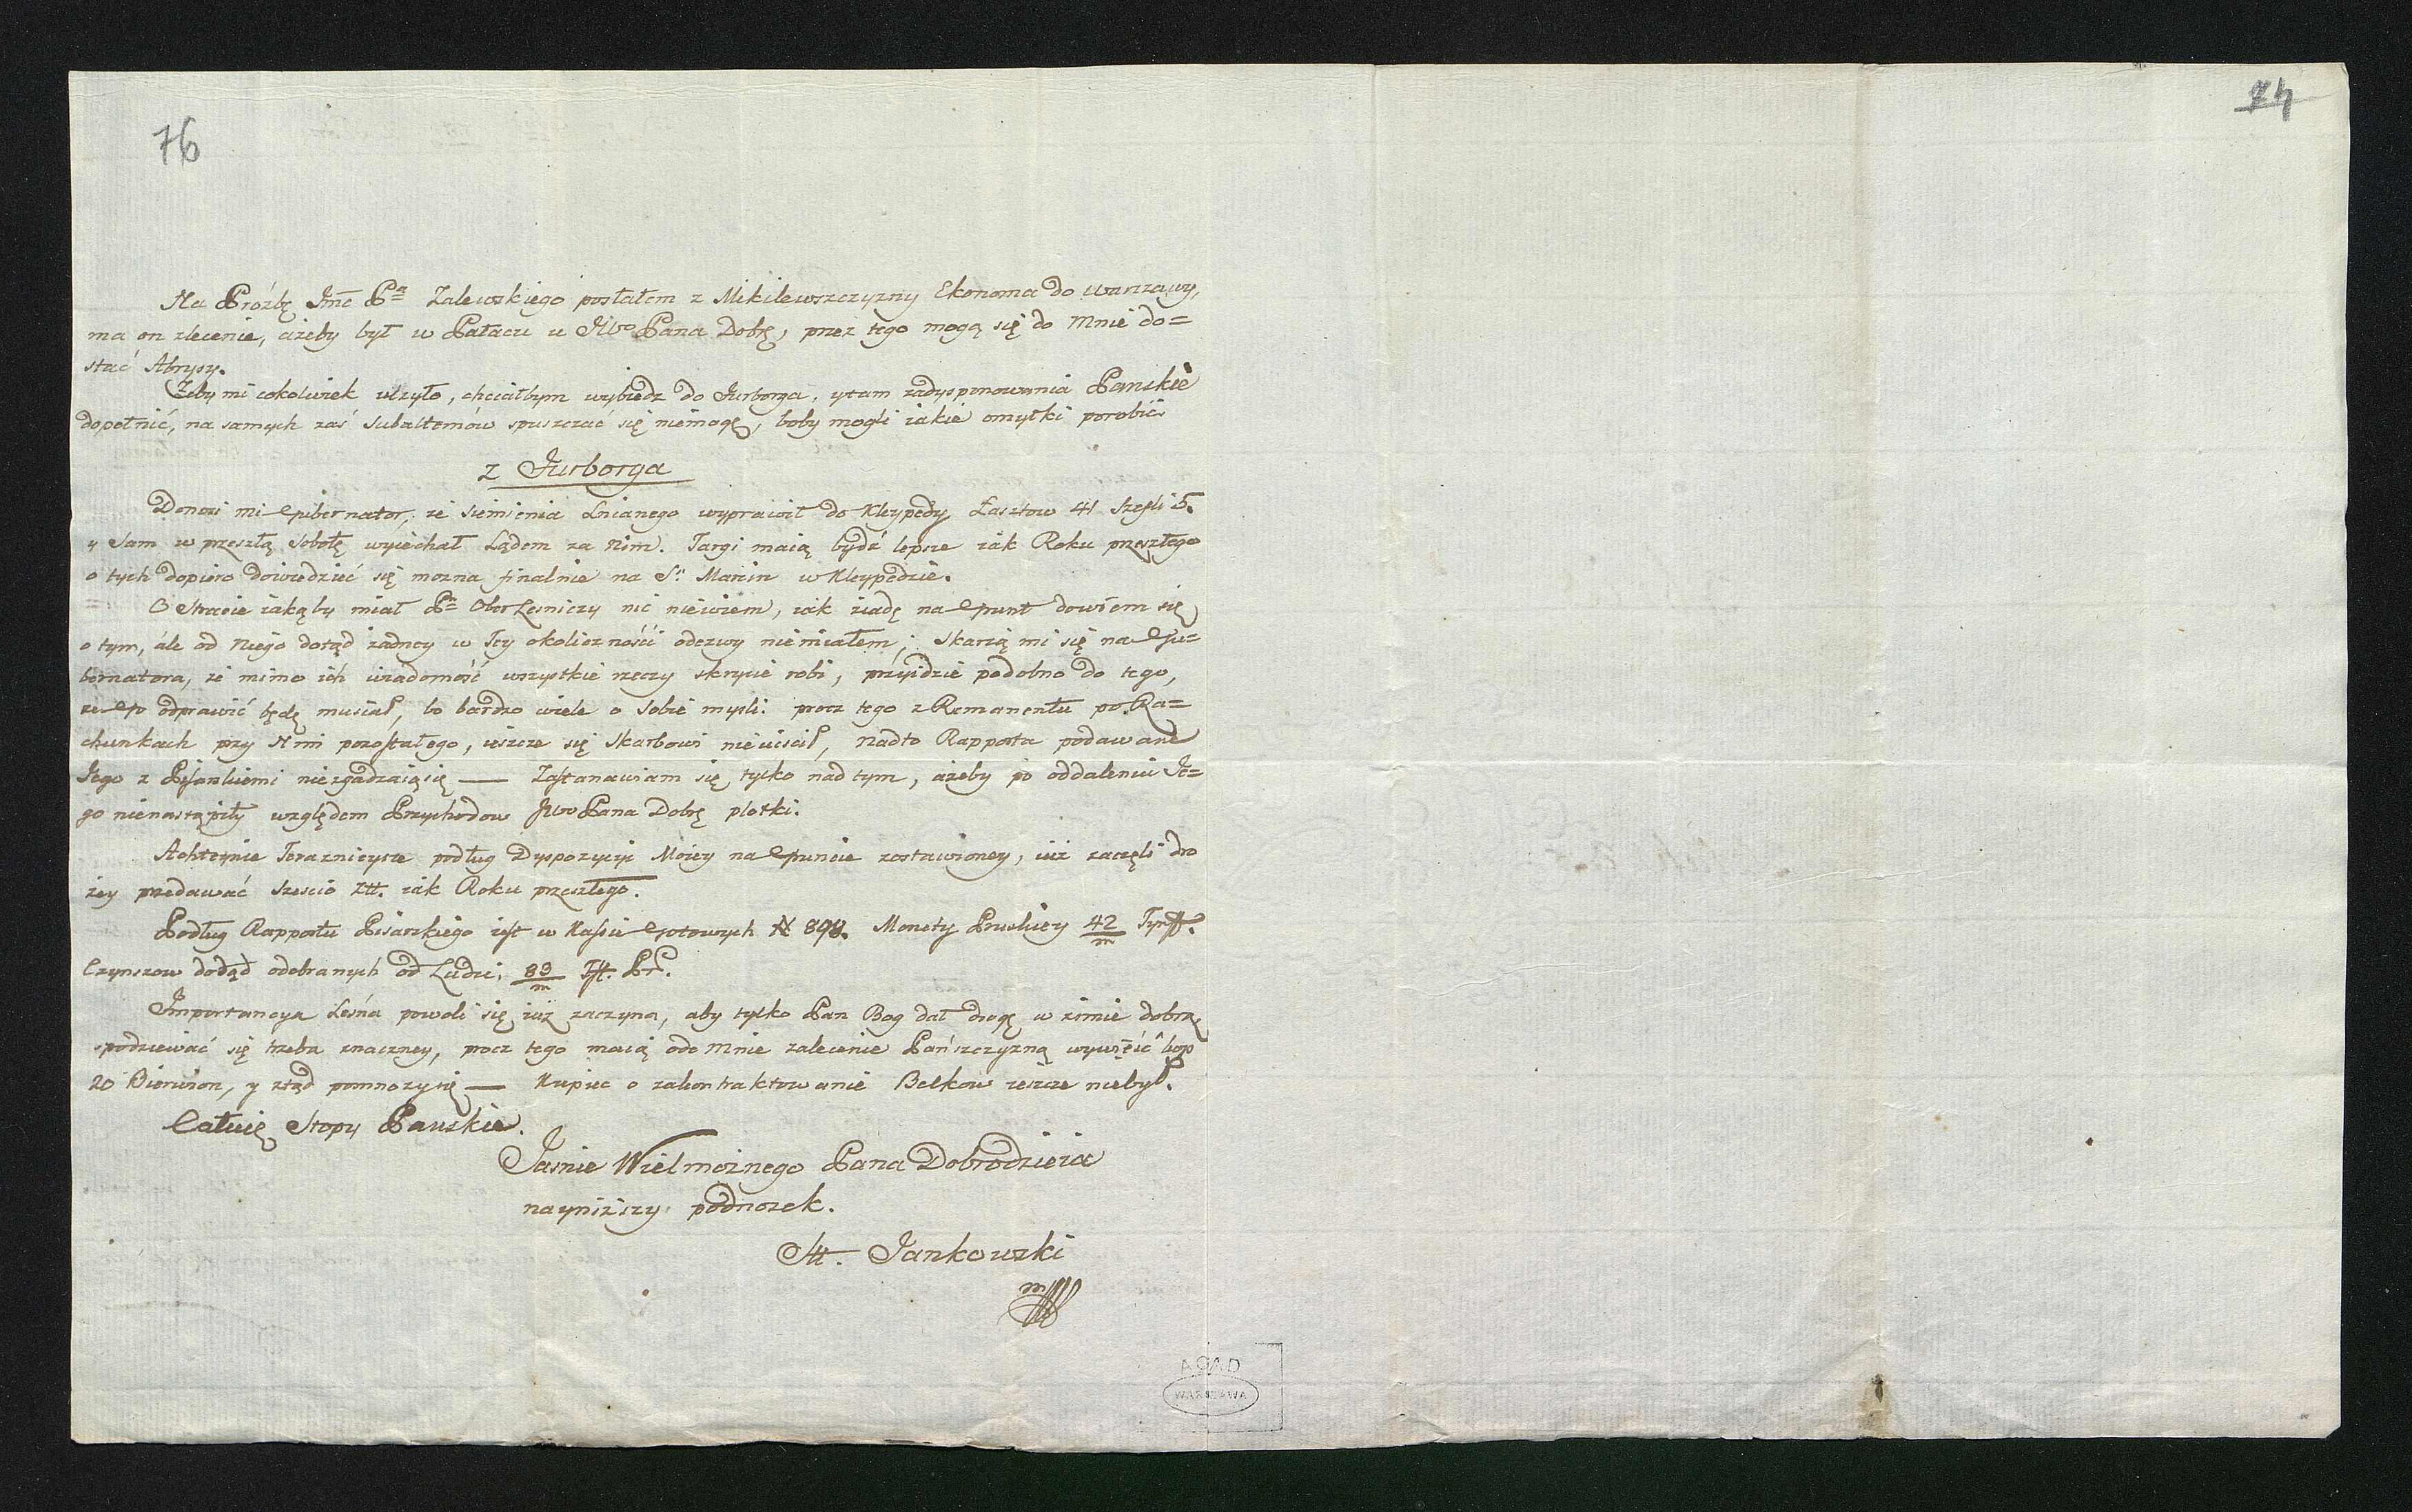 76
74
Na Prózbę Jmć Pa Zalewskiego posłałem z Mikilewszczyzny Ekonoma do Warszawy,
ma on zlecenie, ażeby był w Pałacu u JWo Pana Dobę, przez tego mogą się do Mnie do=
stać Abrysy.
Żeby mi cokolwiek ulżyło, chciałbym wybiedz do Jurborga, y tam zadysponowania Panskie
dopełnić, na samych zaś Subalternów spuszczać się niemogę, boby mogli iakie omyłki porobić.
z Jurborga
Donosi mi Gubernator, że Siemienia Lnianego wyprawił do Kłeypedy Łasztow 41 Szefli 5.
y Sam w przeszłą Sobotę wyiechał Lądem za Nim. Targi maią bydź lepsze iak Roku przeszłego
o tych dopiero dowiedzieć się mozna finalnie na St Marcin w Kłeypedzie.
O Stracie iakąby miał Pn Ober Lesniczy nic niewiem, iak ziadę na Grunt dowiem się
o tym, ále od Niego dotąd żadney w Tey okoliczności odezwy niemiałem; Skarżą mi się na Gu=
bernatora, że mimo ich wiadomość wszystkie rzeczy skrycie robi, przyidzie podobno do tego,
ze Go odprawić będę musiał, bo bardzo wiele o Sobie mysli: procz tego z Remanentu po Ra=
chunkach przy Nim pozostałego, ieszcze się Skarbowi nieuiscił, Nadto Rapporta podawane
Jego z Pisarskiemi niezgadzaią się — Zastanawiam się tylko nad tym, ażeby po oddaleniu Je=
go nienastąpiły względem Przychodow JWo Pana Dobę plotki.
Achtelnie Teraznieysze podług Dyspozycyi Moiey na Gruncie zostawioney, iuż zaczęli dro
żey przedawać Szescio Ztt. iak Roku przeszłego.
Podług Rapportu Pisarskiego iest w Kassie Gotowych # 898. Monety Pruskiey 42/m Tynff.
Czynszow dotąd odebranych od Ludzi, 83/m Tff. Pr.
Importancya Leśna powoli się iuż zaczyna, aby tylko Pan Bog dał drogę w zimie dobrą
spodziewać się trzeba znaczney, procz tego maią odemnie zalecenie Pańszczyzną wywieść kop
20 Bierwion, y ztąd pomnoży się — Kupiec o zakontraktowanie Belkow ieszcze niebył.
Całuię Stopy Panskie.
Jasnie Wielmożnego Pana Dobrodzieia
nayniższy podnozek.
St. Jankowski
AGAD
WARSZAWA